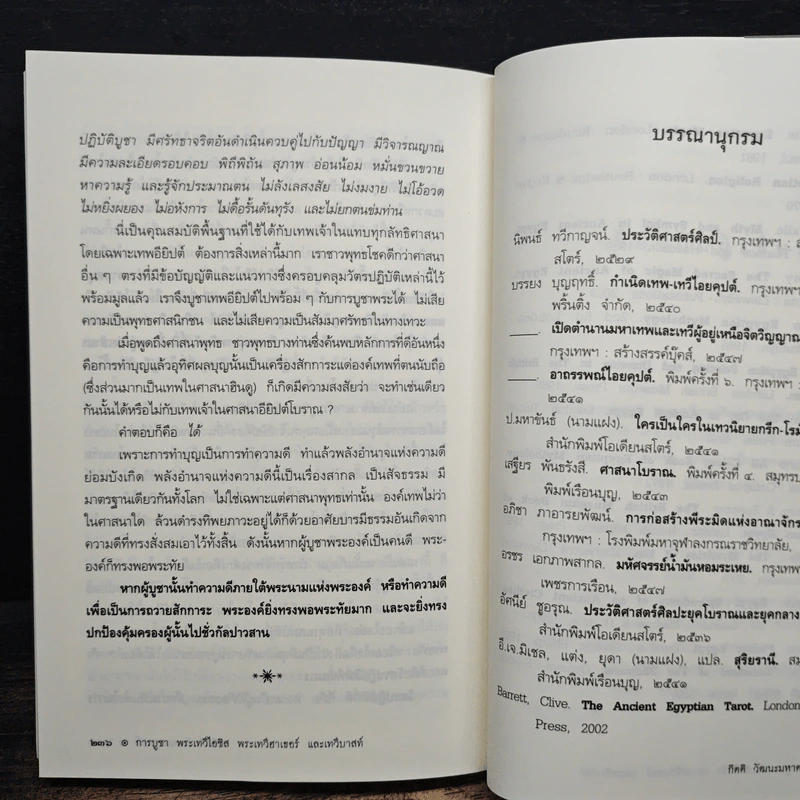 ปฏิบัติบูชา มีศรัทธาจริตอันดำเนินควบคู่ไปกับปัญญา มีวิจารณญาณ
มีความละเอียดรอบคอบ พิถีพิถัน สุภาพ อ่อนน้อม หมั่นขวนขวาย
หาความรู้ และรู้จักประมาณตน ไม่ลังเลสงสัย ไม่งมงาย ไม่โอ้อวด
ไม่หยิ่งผยอง ไม่อหังการ ไม่ดื้อรั้นดันทุรัง และไม่ยกตนข่มท่าน
นี่เป็นคุณสมบัติพื้นฐานที่ใช้ได้กับเทพเจ้าในแทบทุกลัทธิศาสนา
โดยเฉพาะเทพอียิปต์ ต้องการสิ่งเหล่านี้มาก เราชาวพุทธโชคดีกว่าศาสนา
อื่น ๆ ตรงที่มีข้อบัญญัติและแนวทางซึ่งครอบคลุมวัตรปฏิบัติเหล่านี้ไว้
พร้อมมูลแล้ว เราจึงบูชาเทพอียิปต์ไปพร้อม ๆ กับการบูชาพระได้ ไม่เสีย
ความเป็นพุทธศาสนิกชน และไม่เสียความเป็นสัมมาศรัทธาในทางเทวะ
เมื่อพูดถึงศาสนาพุทธ ชาวพุทธบางท่านซึ่งค้นพบหลักการที่ดีอันหนึ่ง
คือการทำบุญแล้วอุทิศผลบุญนั้นเป็นเครื่องสักการะแด่องค์เทพที่ตนนับถือ
(ซึ่งส่วนมากเป็นเทพในศาสนาฮินดู) ก็เกิดมีความสงสัยว่า จะทำเช่นเดียว
กันนั้นได้หรือไม่กับเทพเจ้าในศาสนาอียิปต์โบราณ ?
คำตอบก็คือ ได้
เพราะการทำบุญเป็นการทำความดี ทำแล้วพลังอำนาจแห่งความดี
ย่อมบังเกิด พลังอำนาจแห่งความดีนี้เป็นเรื่องสากล เป็นสัจธรรม มี
มาตรฐานเดียวกันทั้งโลก ไม่ใช่เฉพาะแต่ศาสนาพุทธเท่านั้น องค์เทพไม่ว่า
ในศาสนาใด ล้วนดำรงทิพยภาวะอยู่ได้ก็ด้วยอาศัยบารมีธรรมอันเกิดจาก
ความดีที่ทรงสั่งสมเอาไว้ทั้งสิ้น ดังนั้นหากผู้บูชาพระองค์เป็นคนดี พระ-
องค์ก็ทรงพอพระทัย
หากผู้บูชานั้นทำความดีภายใต้พระนามแห่งพระองค์ หรือทำความดี
เพื่อเป็นการถวายสักการะ พระองค์ยิ่งทรงพอพระทัยมาก และจะยิ่งทรง
ปกป้องคุ้มครองผู้นั้นไปชั่วกัลปาวสาน
๒๓๖ ๏ การบูชา พระเทวีไอซิส พระเทวีฮาเธอร์ และเทวีบาสท์
บรรณานุกรม
นิพนธ์ ทวีกาญจน์. ประวัติศาสตร์ศิลป์. กรุงเทพฯ :
สโตร์, ๒๕๒๙
บรรยง บุญฤทธิ์. กำเนิดเทพ-เทวีไอยคุปต์. กรุงเทพฯ
พริ้นติ้ง จำกัด, ๒๕๔๐
____. เปิดตำนานมหาเทพและเทวีผู้อยู่เหนือจิตวิญญาณ
กรุงเทพฯ : สร้างสรรค์บุ๊คส์, ๒๕๔๗
____. อาถรรพณ์ไอยคุปต์. พิมพ์ครั้งที่ ๖. กรุงเทพฯ :
๒๕๔๑
ป.มหาขันธ์ (นามแฝง). ใครเป็นใครในเทวนิยายกรีก-โรมั
สำนักพิมพ์โอเดียนสโตร์, ๒๕๔๑
เสฐียร พันธรังสี. ศาสนาโบราณ. พิมพ์ครั้งที่ ๔. สมุทรป
พิมพ์เรือนบุญ, ๒๕๔๓
อภิชา ภาอารยพัฒน์. การก่อสร้างพีระมิดแห่งอาณาจักร
กรุงเทพฯ : โรงพิมพ์มหาจุฬาลงกรณราชวิทยาลัย,
อรชร เอกภาพสากล. มหัศจรรย์น้ำมันหอมระเหย. กรุงเทพ
เพชรการเรือน, ๒๕๔๗
อัศนีย์ ชูอรุณ. ประวัติศาสตร์ศิลปะยุคโบราณและยุคกลาง
สำนักพิมพ์โอเดียนสโตร์, ๒๕๓๖
อี.เจ.มิเชล, แต่ง, ยุดา (นามแฝง), แปล. สุริยรานี. สม
สำนักพิมพ์เรือนบุญ, ๒๕๔๑
Barrett, Clive. The Ancient Egyptian Tarot. London
Press, 2002
กิตติ วัฒนะมหาต